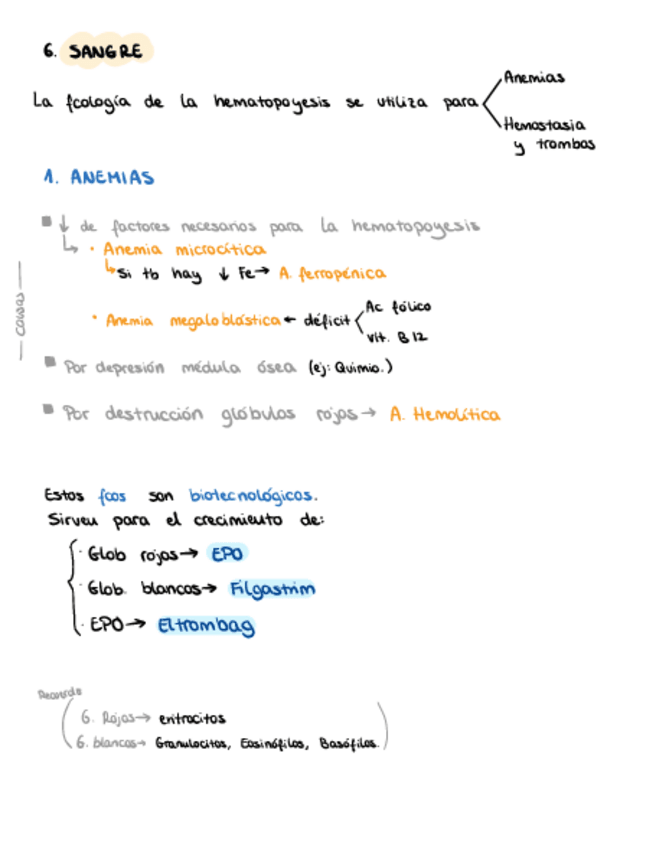 6. SANGRE
La fcología de la hematopoyesis se utiliza para
Anemias
Hemostasia
y trombos
1. ANEMIAS
— causas —
↓ de factores necesarios para la hematopoyesis
↳ · Anemia microcítica
↳ Si tb hay ↓ Fe → A. ferropénica
· Anemia megaloblástica ← déficit
Ac fólico
Vit. B12
Por depresión médula ósea (ej: Quimio.)
Por destrucción glóbulos rojos → A. Hemolítica
Estos fcos son biotecnológicos.
Sirven para el crecimiento de:
· Glob rojos → EPO
· Glob. blancos → Filgastrim
· EPO → Eltrombag
Recuerda
G. Rojos → eritrocitos
G. blancos → Granulocitos, Eosinófilos, Basófilos.